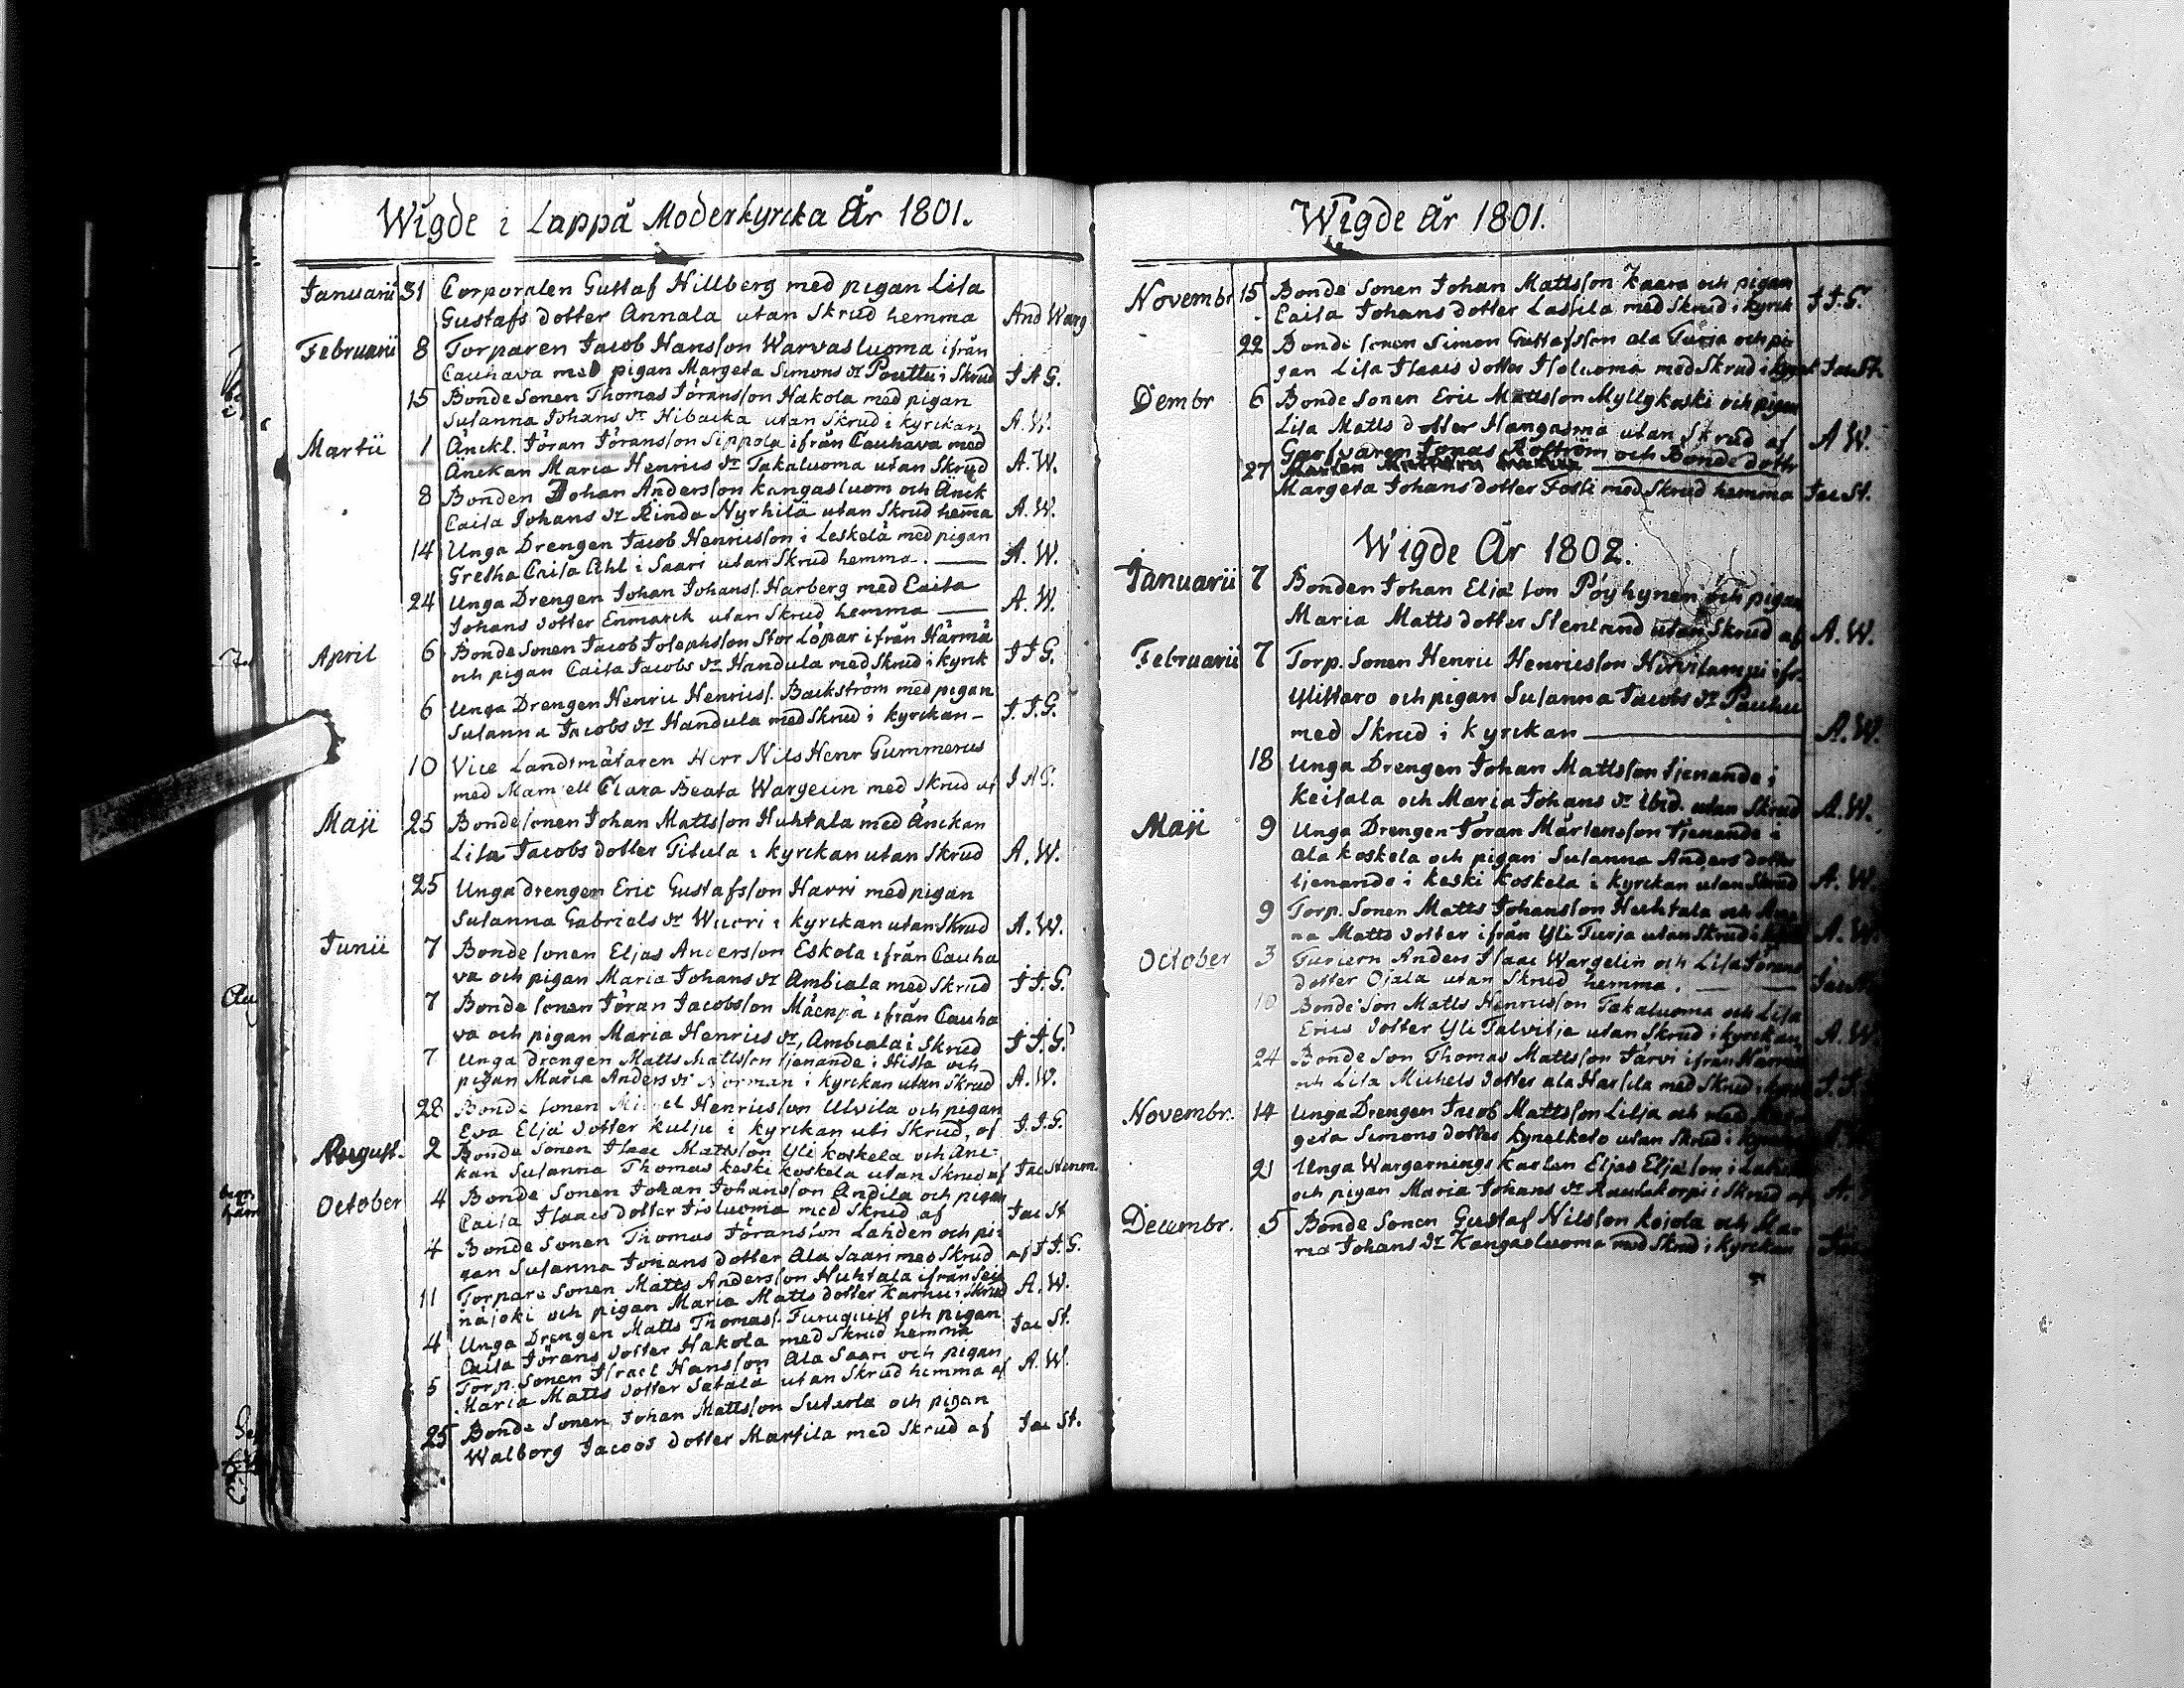 Wigde i Lappå Moderkyrcka År 1801.
Januarii 31 Corporalen Gustaf Hillberg med pigan Lisa
Gustafs dotter Annala utan Skrud hemma And Warg
Februarii 8 Torparen Jacob Hansson Warvasluoma ifrån
Cauhava med pigan Margeta Simons dr Pouttu i Skrud J A G.
15 Bonde Sonen Thomas Jöransson Hakola med pigan
Susanna Johans dr Hibacka utan Skrud i kyrckan A. W.
Martii 1 Änckl. Jöran Jöransson Sippola ifrån Cauhava med
Änckan Maria Henrics dr Takaluoma utan Skrud A. W.
8 Bonden Johan Andersson Kangasluom och Änck
Caisa Johans dr Rinda Nyrhilä utan Skrud hema A. W.
14 Unga Drengen Jacob Henricsson i Leskelä med pigan
Gretha Caisa Ahl i Saari utan Skrud hemma. A. W.
24 Unga Drengen Johan Johans. Harberg med Caisa
Johans dotter Enmarck utan Skrud hemma A. W.
April 6 Bonde Sonen Jacob Josephsson Stor Löpar ifrån Härmä
och pigan Caisa Jacobs dr Handula med Skrud i kyrck J J G.
6 Unga Drengen Henric Henrics. Backström med pigan
Susanna Jacobs dr Handula med Skrud i kyrckan J. J. G.
10 Vice Landtmätaren Herr Nils Henr Gummerus
med Mamsell Clara Beata Wargelin med Skrud af J A G.
Maji 25 Bondesonen Johan Mattsson Huhtala med Änckan
Lisa Jacobs dotter Titula i kyrckan utan Skrud A. W.
25 Unga drengen Eric Gustafsson Harri med pigan
Susanna Gabriels dr Wuori i kyrckan utan Skrud A. W.
Junii 7 Bonde sonen Eljas Andersson Eskola ifrån Cauha
va och pigan Maria Johans dr Ambiala med Skrud J J. G.
7 Bonde sonen Jöran Jacobsson Mäenpä ifrån Cauha
va och pigan Maria Henrics dr, Ambiala i Skrud J J. G.
7 Unga drengen Matts Mattsson tjenande i Hissa och
pigan Maria Anders dr Norman i kyrckan utan Skrud A. W.
28 Bonde sonen Henricsson Ulvila och pigan
Eva Elja dotter Kulju i kyrckan uti Skrud, af J. J. G.
August. 2 Bonde Sonen Isaac Mattsson Yli Koskela och Änc-
kan Susanna Thomas Keski Koskela utan Skrud af
October 4 Bonde Sonen Johan Johansson Andila och pigan
Caisa Isaacs dotter Isoluoma med Skrud af Jac St
4 Bonde Sonen Thomas Jöransson Lahden och pi-
gan Susanna Johans dotter Ala Saari med Skrud af J J. G.
11 Torpare Sonen Matts Andersson Huhtala ifrån Sei
näjoki och pigan Maria Matts dotter Karhu i Skrud A. W.
4 Unga Drengen Matts Thomas. Furuquist och pigan
Caisa Jörans dotter Hakola med Skrud hemma Jac St.
5 Torp. Sonen Israel Hansson Ala Saari och pigan
Maria Matts dotter Sätälä utan Skrud hemma af A. W.
25 Bonde Sonen Johan Mattsson och pigan
Walborg Jacobs dotter Marsila med Skrud af Jac St.
Wigde År 1801.
Novembr 15 Bonde Sonen Johan Mattsson Kaara och pigan
Caisa Johans dotter Lassila med Skrud i kyrck J J. G.
22 Bonde sonen Simon Gustafsson ala Turia och pi
gan Lisa Isaacs dotter Isoluoma med Skrud i Jac St.
Dembr 6 Bonde Sonen Eric Mattsson Myllykoski och pigan
Lisa Matts dotter Hangasma utan Skrud af A W.
27 Garfvaren Jonas Roström och Bonde dottr
Margeta Johans dotter Fosti med Skrud hemma Jac St.
Wigde År 1802.
Januarii 7 Bonden Johan Elja son Pöyhynen och pigan
Maria Matts dotter Stenlund utan Skrud af A. W.
Februarii 7 Torp. Sonen Henric Henricsson Hirvilampi ifr.
Ylistaro och pigan Susanna Jacobs dr Pauhu
med Skrud i kyrckan A. W.
18 Unga Drengen Johan Mattsson tjenande i
Keisala och Maria Johans dr ibid. utan Skrud A. W.
Maji 9 Unga Drengen Jöran Mårtensson tjenande i
Ala Koskela och pigan Susanna Anders dotter
tjenande i Keski Koskela i kyrckan utan Skrud A. W.
9 Torp. Sonen Matts Johansson Huhtala och An
na Matts dotter ifrån Yli Turja utan Skrud i A. W.
October 3 Anders Isaac Wargelin och Lisa Jörans
dotter Ojala utan Skrud hemma.
10 Bonde Son Matts Henricsson Takaluoma och Lisa
Erics dotter Yli Talvitja utan Skrud i kyrckan A. W
24 Bonde Son Thomas Mattsson Järvi ifrån
och Lisa Michels dotter ala Harsila med Skrud J. J.
Novembr. 14 Unga Drengen Jacob Mattsson Lilja och
geta Simons dotter utan Skrud i
21 Unga Wargernings Karlen Eljas Elja son i
och pigan Maria Johans dr Rautakorpi i Skrud af
Decembr. 5 Bonde Sonen Gustaf Nilsson Kojola och Ma
ria Johans dr Kangasluoma med Skrud i kyrckan